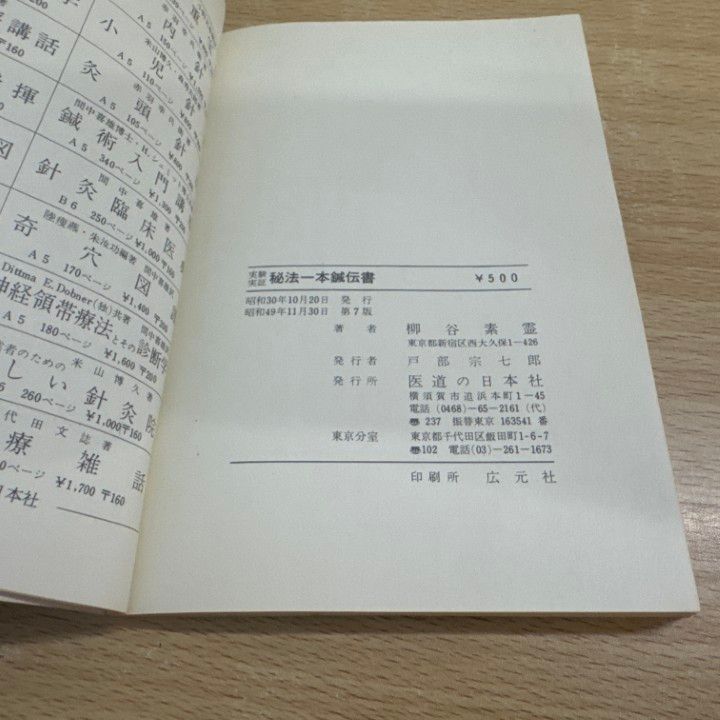 実験
実証 秘法一本鍼伝書 ¥500
昭和30年10月20日 発行
昭和49年11月30日 第7版
著者 柳谷素霊
東京都新宿区西大久保1−426
発行者 戸部宗七郎
発行所 医道の日本社
横須賀市追浜本町1−45
電話(0468)−65−2161(代)
☎237 振替東京163541番
東京分室 東京都千代田区飯田町1-6-7
☎102 電話(03)−261−1673
印刷所 広元社
講話
〒160
小児
A5 110ページ
灸頭
A5 105ページ
揮
間中喜雄博士・H.
鍼術入門
A5 340ページ ¥1,300
間中喜雄著
図
針灸臨床医
B6 250ページ ¥1,000 〒160
陸痩燕・朱汝功編著
奇穴図
A5 170ページ ¥1,400 〒200
Dittma E. Dobner(独)共著
神経領帯療法とその診断学
A5 180ページ ¥1,600 〒200
者のための 米山博久著
しい針灸院
260ページ ¥1,000〒160
代田文誌著
療雑話
ページ ¥1,700 〒160
日本社